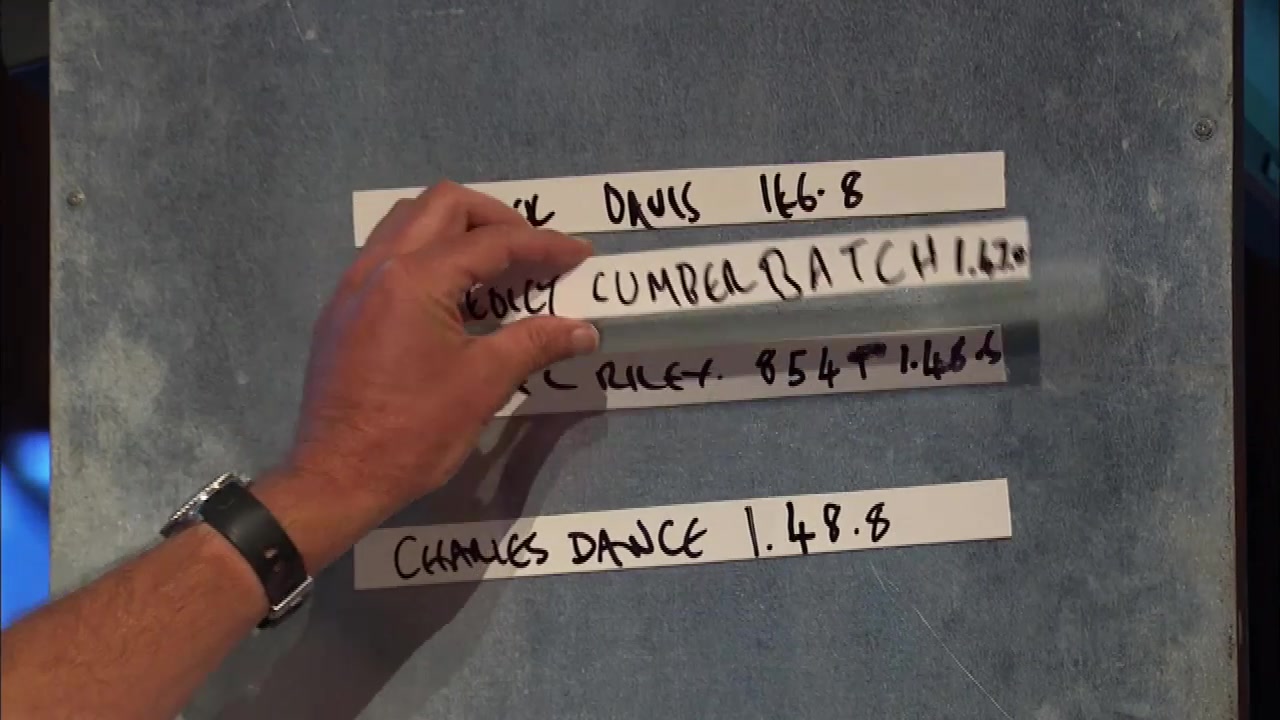 DAVIS 1.46.8
CUMBERBATCH 1.47.0
RILEY. 854T 1.46.5
CHARLES DANCE 1.48.8